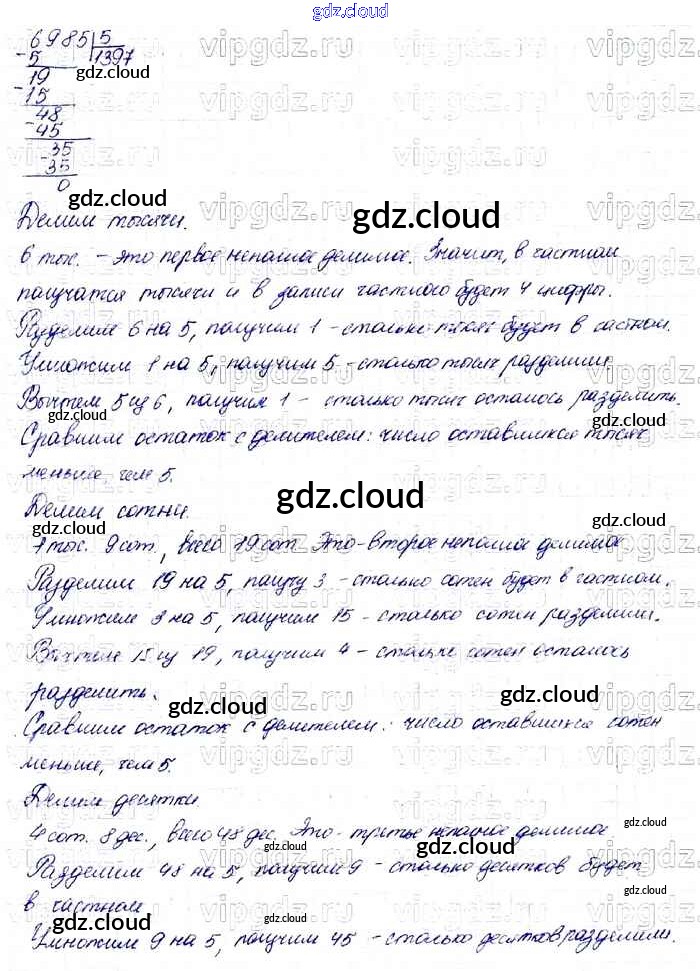 gdz.cloud
6985 5
- 5 1397
19 gdz.cloud
- 15
48
- 45
35
35
0
gdz.cloud
Делим тысячи. gdz.cloud
6 тыс. – это первое неполное делимое. Значит, в частном
получатся тысячи и в записи частного будет 4 цифры.
Разделим 6 на 5, получим 1 – столько тысяч будет в частном.
gdz.cloud gdz.cloud
Умножим 1 на 5, получим 5 – столько тысяч разделили.
Вычтем 5 из 6, получим 1 – столько тысяч осталось разделить.
gdz.cloud gdz.cloud
Сравним остаток с делителем: число оставшихся тысяч
меньше, чем 5.
Делим сотни. gdz.cloud
gdz.cloud gdz.cloud
1 тыс. 9 сот., всего 19 сот. Это – второе неполное делимое
Разделим 19 на 5, получу 3 – столько сотен будет в частном.
gdz.cloud
Умножим 3 на 5, получим 15 – столько сотен разделили.
Вычтем 15 из 19, получим 4 – столько сотен осталось
gdz.cloud
разделить. gdz.cloud gdz.cloud
Сравним остаток с делителем: число оставшихся сотен
меньше, чем 5.
Делим десятки.
gdz.cloud
4 сот. 8 дес., всего 48 дес. Это – третье неполное делимое
gdz.cloud gdz.cloud
Разделим 48 на 5, получим 9 – столько десятков будет
в частном gdz.cloud
gdz.cloud
Умножим 9 на 5, получим 45 – столько десятков разделили.
gdz.cloud